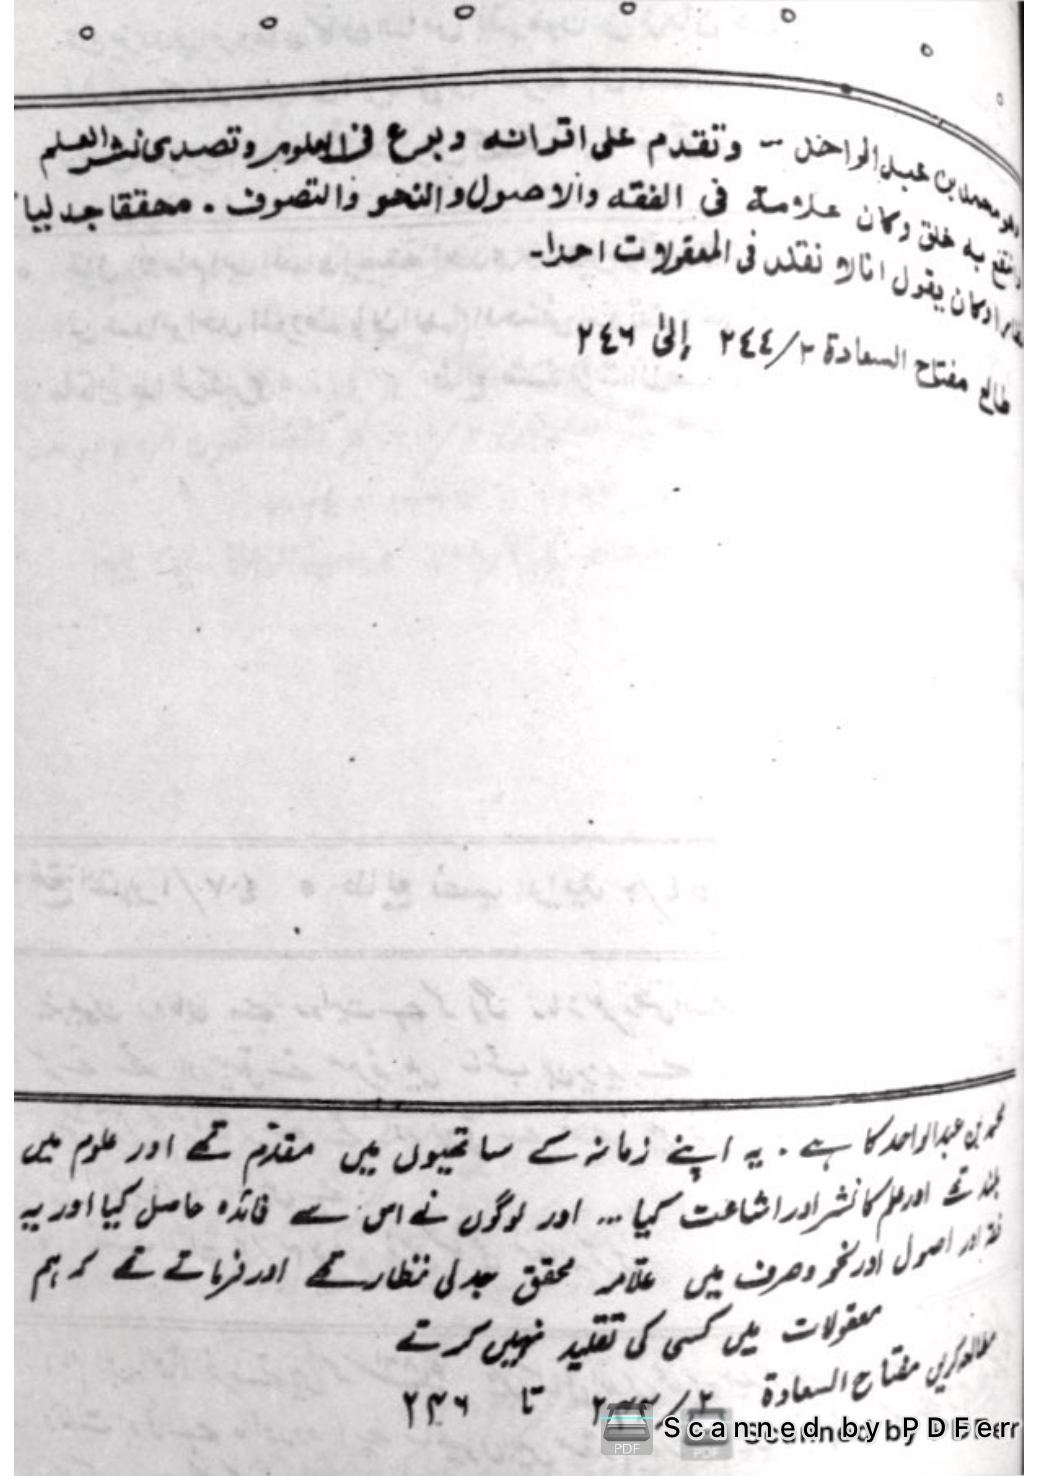 محمد بن عبد الواحد - وتقدم على اقرانه وبرع فى العلوم وتصدى لنشر العلم
وانتفع به خلق وكان علامة فى الفقه والاصول والنحو والتصوف . محققا جدليا
نظارا وكان يقول انا لا نقلد فى المعقولات احدا -
طالع مفتاح السعادة ٢/٢٤٤ إلى ٢٤٦
محمد بن عبدالواحد کا ہے . یہ اپنے زمانہ کے ساتھیوں میں مقدّم تھے اور علوم میں
بلند تھے اور علم کا نشر اور اشاعت کیا ... اور لوگوں نے اس سے فائدہ حاصل کیا اور یہ
فقہ اور اصول اور نحو وصرف میں علّامہ محقق جدلی نظار تھے اور فرماتے تھے کہ ہم
معقولات میں کسی کی تقلید نہیں کرتے
مطالعہ کریں مفتاح السعادة ٢/٢۴۴ تا ٢۴۶
Scanned by PDFerr